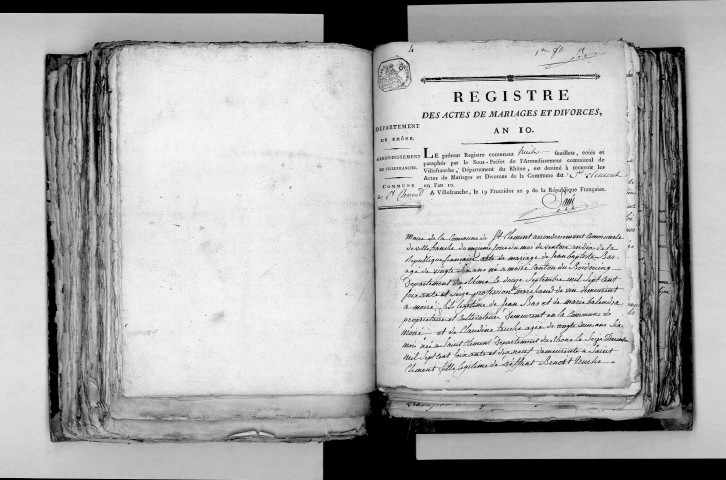 REGISTRE
DES ACTES DE MARIAGES ET DIVORCES,
AN 10.
DÉPARTEMENT
DU RHÔNE.
ARRONDISSEMENT
DE VILLEFRANCHE.
COMMUNE
de St Clement
LE présent Registre contenant huit feuillets, cotés et
paraphés par le Sous-Préfet de l'Arrondissement communal de
Villefranche, Département du Rhône, est destiné à recevoir les
Actes de Mariages et Divorces de la Commune de St Clement
en l'an 10.
A Villefranche, le 19 Fructidor an 9 de la République Française.
Mairie de la Commune de St Clement arrondissement Communale
de villefranche du jour du mois de ventose an dix de la
République française acte de mariage de Jean baptiste Bas
agé de vingt six ans né a moiré Canton du
Departement du Rhone le douze Septembre mil Sept Cent
soixante et Seize profession marchand de vin demeurant
a moiré fils legitime de Jean Bas et de marie
proprietaire et cultivateur demeurant en la Commune de
moiré et de Claudine agée de vingt deux ans six
mois née a Saint Clement Departement du Rhone le Seize
mil Sept Cent Soixante et dix neuf demeurante a Saint
Clement fille legitime de deffunt Benoit